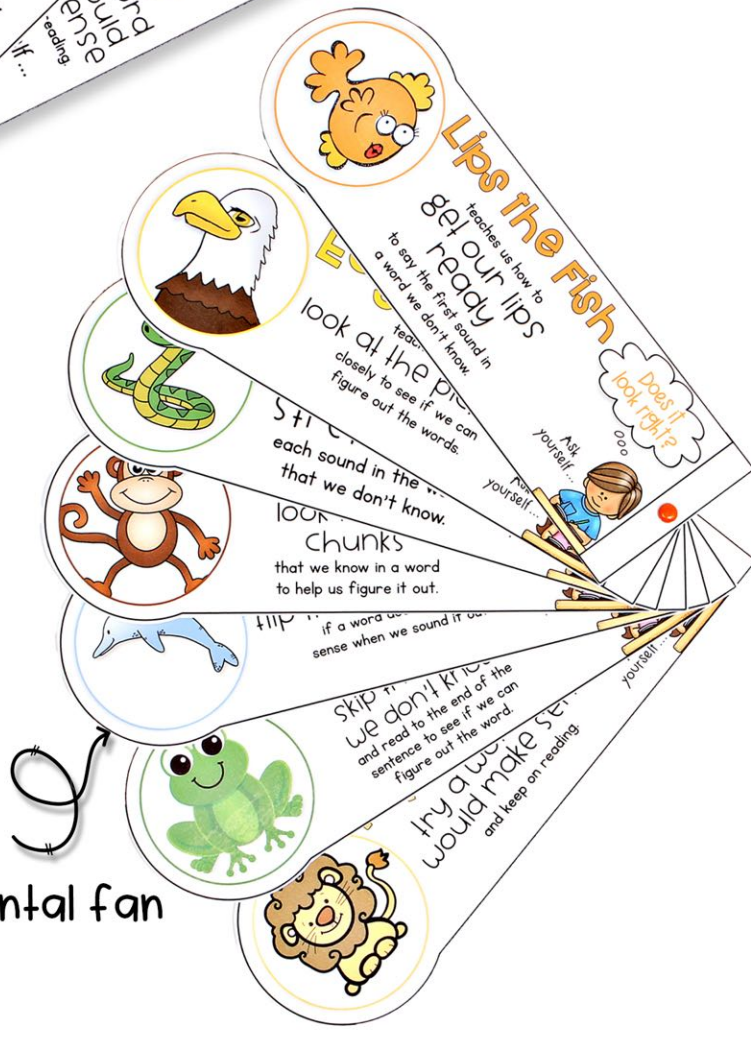 ord
ould
ense
reading.
lf ...
Lips the Fish
teaches us how to
get our lips
ready
to say the first sound in
a word we don't know.
Does it
look right?
Ask
yourself...
look at the pic
closely to see if we can
figure out the words.
yourself...
each sound in the
that we don't know.
look
chunks
that we know in a word
to help us figure it out.
flip
if a word
sense when we sound it
skip
we don't
and read to the end of the
sentence to see if we can
figure out the word.
yourself...
try a
would make
and keep on reading.
ntal fan